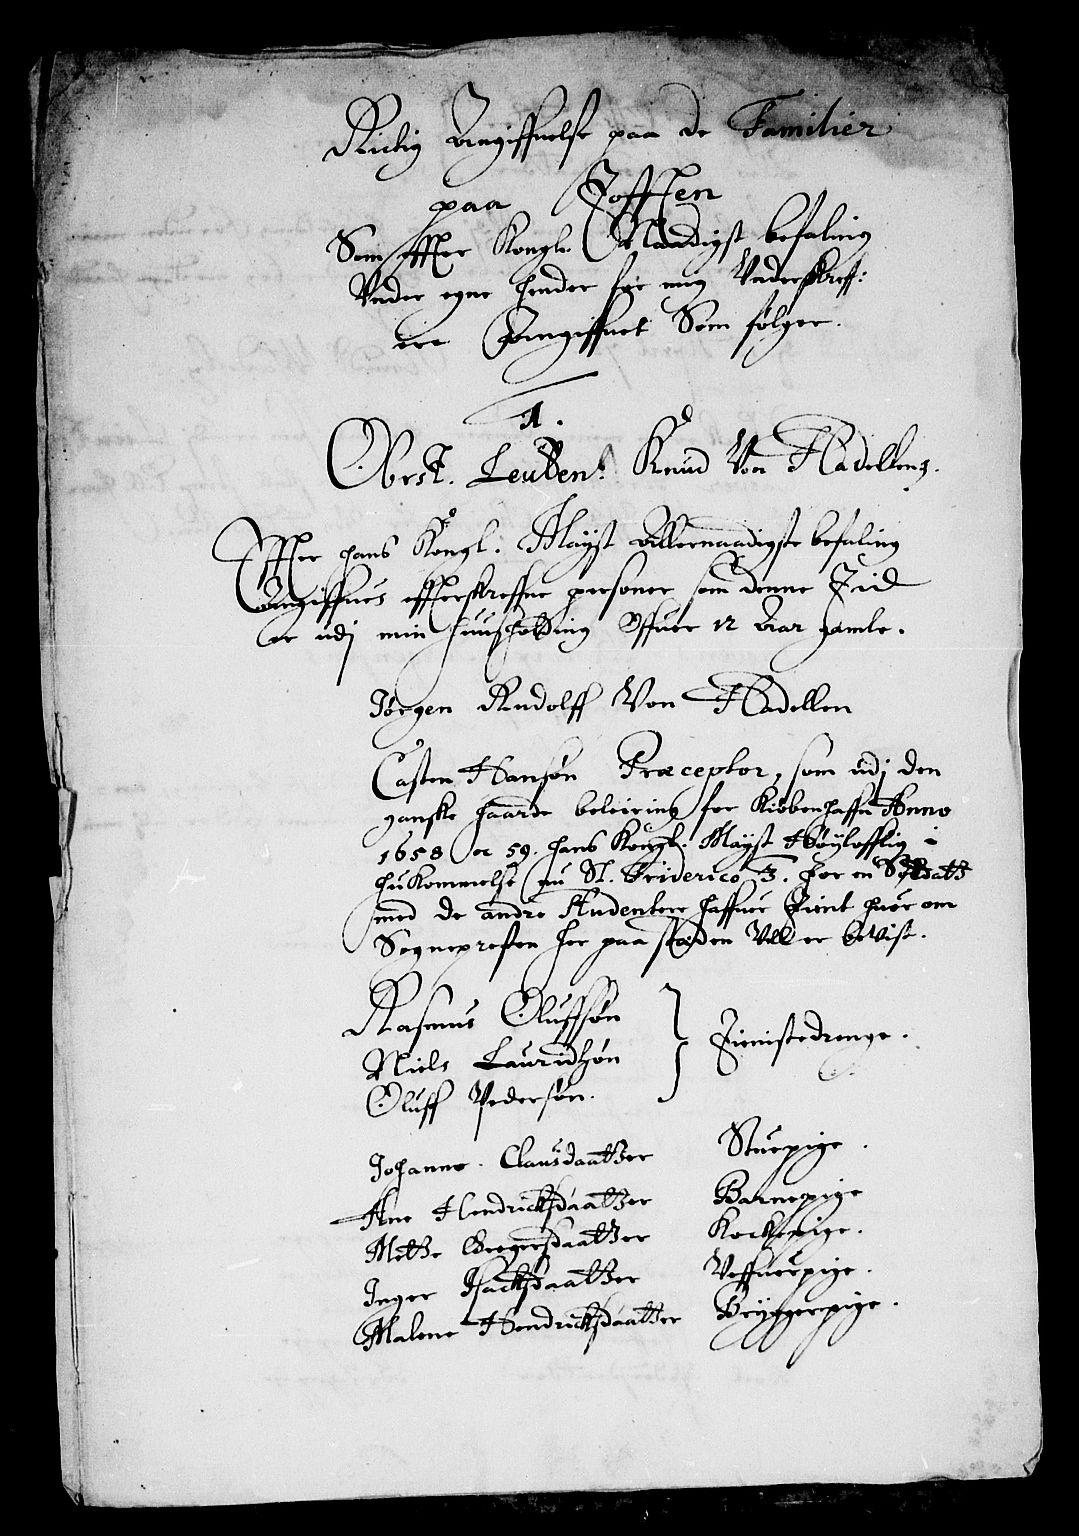 Rictig Angiffuelse paa de Familier
paa Toffen
Som effter Kongl. Naadigst befaling
Vnder egne hender for mig Vnderskreff:
ere Angiffuet Som følger.
1.
Oberst. Leutten: Knud Von Hadellens.
Effter hans Kongl. Mayst Allernaadigste befaling
Angiffues effterskreffne personer som denne Tid
er udj min huusholding Offuer 12 Aar gamle.
Jørgen Rudolff Von Hadellen
Casten Hansøn Præceptor, som udj den
ganske haarde beleiring for Kiøbenhaffn Anno
1658 oc 59. hans Kongl. Mayst Høylofflig i
hukommelse nu Sl. Friderico 3. for en Soldatt
med de andre Studentere haffuer Tient huor om
Sognepresten her paa stæden Vell er bevist.
Rasmus Oluffsøn
Niels Lauridtzøn } Tienistedrenge.
Oluff Pedersøn.
Johanne Clausdaatter Stuepige.
Ane Hendricksdaatter Barnepige
Mette Gregersdaatter Kockepige.
Inger Isacksdaatter Veffuerpige.
Malene Hendricksdaatter Bryggerpige.